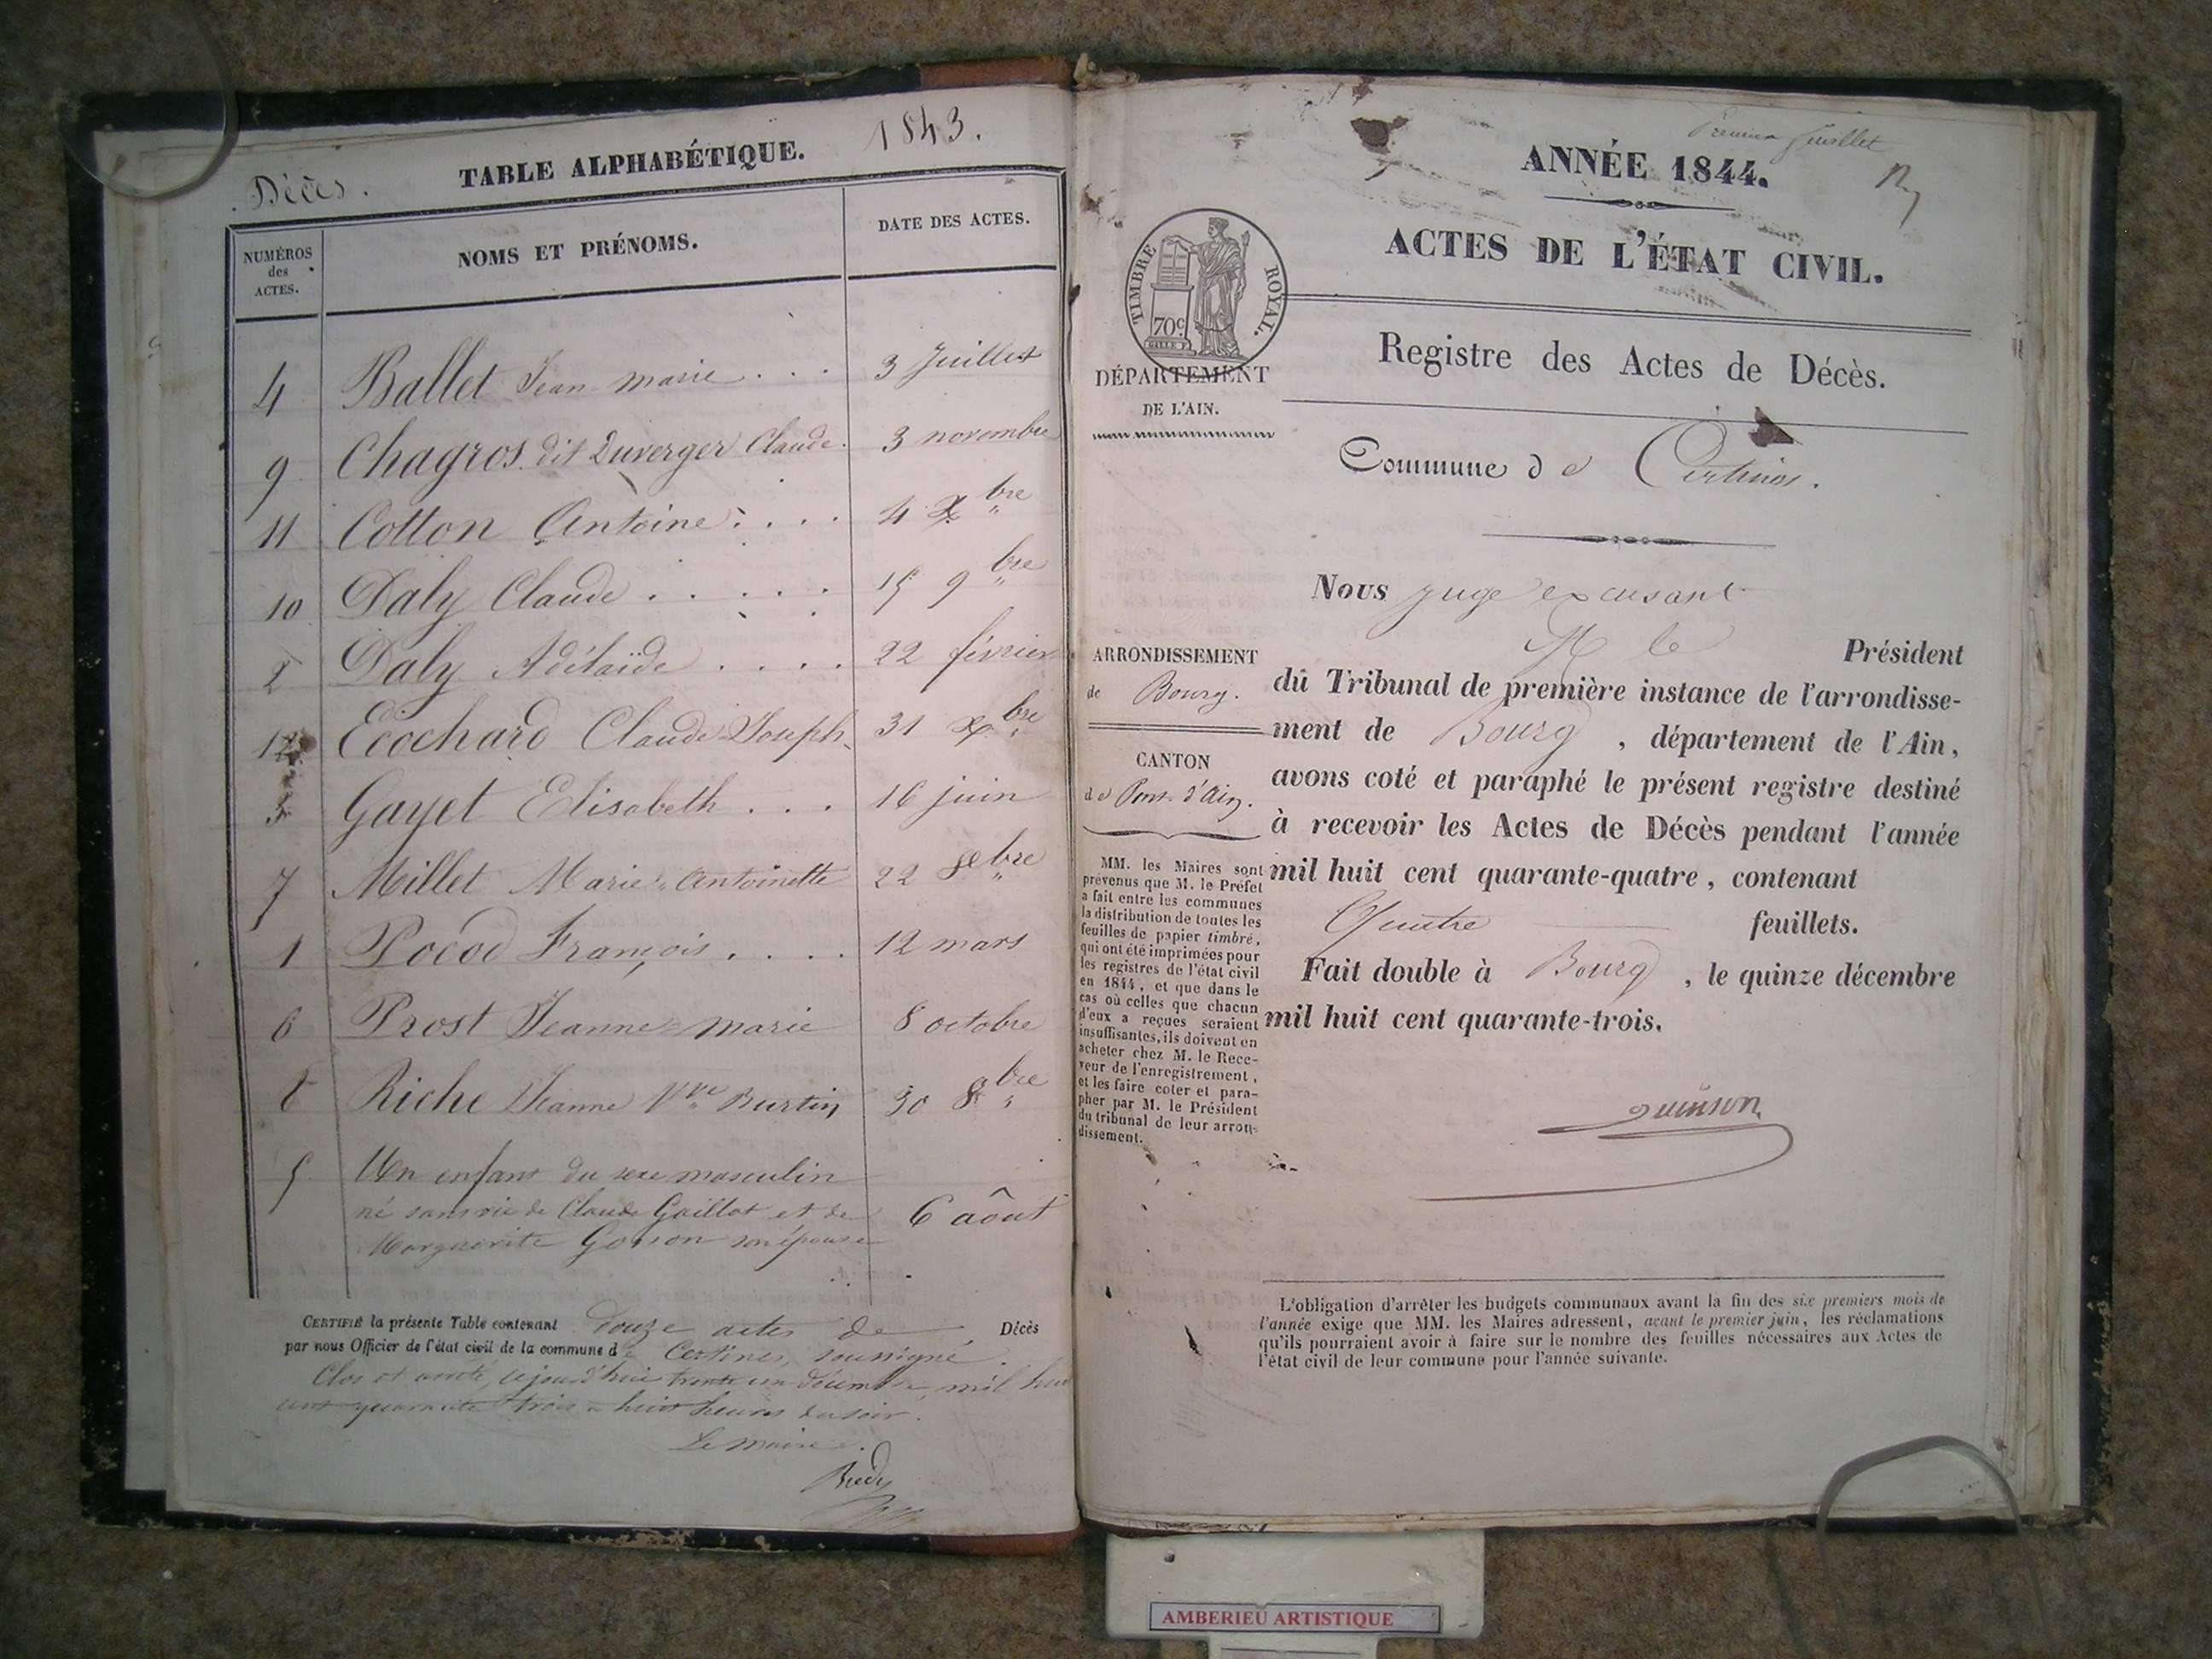 1843.
Décès.
TABLE ALPHABÉTIQUE.
NUMÉROS
des
ACTES.
NOMS ET PRÉNOMS.
DATE DES ACTES.
4 Ballet Jean marie . . . 3 Juillet
9 Chagros dit Duverger Claude. 3 novembre
11 Cotton Antoine . . . . 4 Xbre
10 Daly Claude . . . . . 15 9bre
2 Daly Adélaïde . . . . 22 février
12 Ecochard Claude Joseph. 31 Xbre
3 Gayet Elisabeth . . . 16 juin
7 Millet Marie Antoinette 22 8bre
1 Pocod François . . . . 12 mars
6 Prost Jeanne marie 8 octobre
8 Riche Jeanne Vve Burtin 30 8bre
5 Un enfant du sexe masculin
né sans vie de Claude Gaillot et de
Marguerite son épouse 6 août
CERTIFIÉ la présente Table contenant Douze actes de Décès
par nous Officier de l'état civil de la commune de Certines, soussigné.
Clos et arrêté, cejourd'hui trente un décembre mil huit
cent quarante trois à huit heures du soir.
Le maire.
Premier feuillet
ANNÉE 1844.
ACTES DE L'ÉTAT CIVIL.
TIMBRE ROYAL.
70c
Registre des Actes de Décès.
DÉPARTEMENT
DE L'AIN.
Commune de Certines.
Nous juge excusant
M le Président
du Tribunal de première instance de l'arrondisse-
ment de Bourg, département de l'Ain,
avons coté et paraphé le présent registre destiné
à recevoir les Actes de Décès pendant l'année
mil huit cent quarante-quatre, contenant
Quatre feuillets.
Fait double à Bourg, le quinze décembre
mil huit cent quarante-trois.
ARRONDISSEMENT
de Bourg.
CANTON
de Pont-d'Ain.
MM. les Maires sont
prévenus que M. le Préfet
a fait entre les communes
la distribution de toutes les
feuilles de papier timbré,
qui ont été imprimées pour
les registres de l'état civil
en 1844, et que dans le
cas où celles que chacun
d'eux a reçues seraient
insuffisantes, ils doivent en
acheter chez M. le Rece-
veur de l'enregistrement,
et les faire coter et para-
pher par M. le Président
du tribunal de leur arron-
dissement.
L'obligation d'arrêter les budgets communaux avant la fin des six premiers mois de
l'année exige que MM. les Maires adressent, avant le premier juin, les réclamations
qu'ils pourraient avoir à faire sur le nombre des feuilles nécessaires aux Actes de
l'état civil de leur commune pour l'année suivante.
AMBERIEU ARTISTIQUE